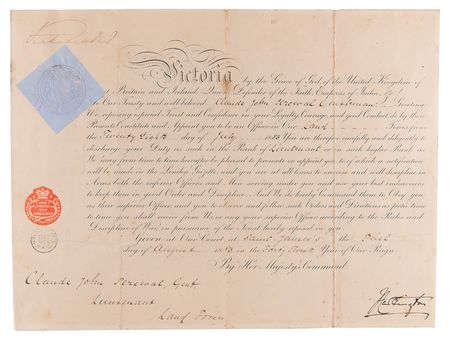 Victoria by the Grace of God of the United Kingdom of
Britain and Ireland Queen, Defender of the Faith, Empress of India, &c
To Our Trusty and well beloved Claude John Perceval Gentleman Greeting
We reposing especial Trust and Confidence in your Loyalty, Courage, and good Conduct, do by these
Presents Constitute and Appoint you to be an Officer in Our Land Forces from
the Twenty Eighth day of July 1883. You are therefore carefully and diligently to
discharge your Duty as such in the Rank of Lieutenant or in such higher Rank as
We may from time to time hereafter be pleased to promote or appoint you to, of which a notification
will be made in the London Gazette, and you are at all times to exercise and well discipline in
Arms both the inferior Officers and Men serving under you and use your best endeavours
to keep them in good Order and Discipline. And We do hereby Command them to Obey you
as their superior Officer, and you to observe and follow such Orders and Directions as from time
to time you shall receive from Us, or any your superior Officer according to the Rules and
Discipline of War, in pursuance of the Trust hereby reposed in you.
Given at Our Court, at Saint James's the
day of August 1883 in the Forty Year of Our Reign.
By Her Majesty's Command.
Claude John Perceval, Gent
Lieutenant
Land Forces
Hartington